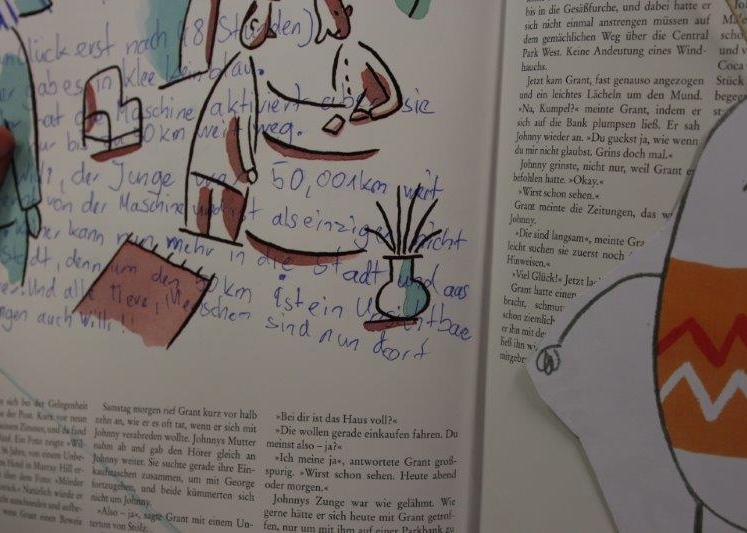 nglück erst nach (18 Stunden)
er gab es in klee kein blau.
hat die Maschine aktiviert aber sie
nur bis 50km weit weg.
Willi, der Junge war 50,001km weit
von der Maschine und ist als einziger nicht
kann nun mehr in die Stadt und aus
Stadt, denn um den 50km ist ein Unsichtbae
Und alle Tiere, Menschen sind nun dort
ngen auch Willi!!
sich bei der Gelegenheit
der Post. Kurz vor neun
seinem Zimmer, und da fand
Ein Foto zeigte »Wil-
36 Jahre, von einem Unbe-
Hotel in Murray Hill er-
dem Foto: »Mörder
Natürlich würde er
einschneiden und aufbe-
wenn Grant einen Beweis
Samstag morgen rief Grant kurz vor halb
zehn an, wie er es oft tat, wenn er sich mit
Johnny verabreden wollte. Johnnys Mutter
nahm ab und gab den Hörer gleich an
Johnny weiter. Sie suchte gerade ihre Ein-
kaufstaschen zusammen, um mit George
fortzugehen, und beide kümmerten sich
nicht um Johnny.
»Also – ja«, sagte Grant mit einem Un-
terton von Stolz.
»Bei dir ist das Haus voll?«
»Die wollen gerade einkaufen fahren. Du
meinst also – ja?«
»Ich meine ja«, antwortete Grant groß-
spurig. »Wirst schon sehen. Heute abend
oder morgen.«
Johnnys Zunge war wie gelähmt. Wie
gerne hätte er sich heute mit Grant getrof-
fen, nur um mit ihm auf einer Parkbank zu
bis in die Gesäßfurche, und dabei hatte er
sich nicht einmal anstrengen müssen auf
dem gemächlichen Weg über die Central
Park West. Keine Andeutung eines Wind-
hauchs.
Jetzt kam Grant, fast genauso angezogen
und ein leichtes Lächeln um den Mund.
»Na, Kumpel?« meinte Grant, indem er
sich auf die Bank plumpsen ließ. Er sah
Johnny wieder an. »Du guckst ja, wie wenn
du mir nicht glaubst. Grins doch mal.«
Johnny grinste, nicht nur, weil Grant e
befohlen hatte. »Okay.«
»Wirst schon sehen.«
Grant meinte die Zeitungen, das w
Johnny.
»Die sind langsam«, meinte Gra
leicht suchen sie zuerst noch
Hinweisen.«
»Viel Glück!« Jetzt la
Grant hatte einen
bracht, schmut
schon ziemlich
er ihn mit de
ließ ihn wi
mitgebr
Coca
Stück
begeg